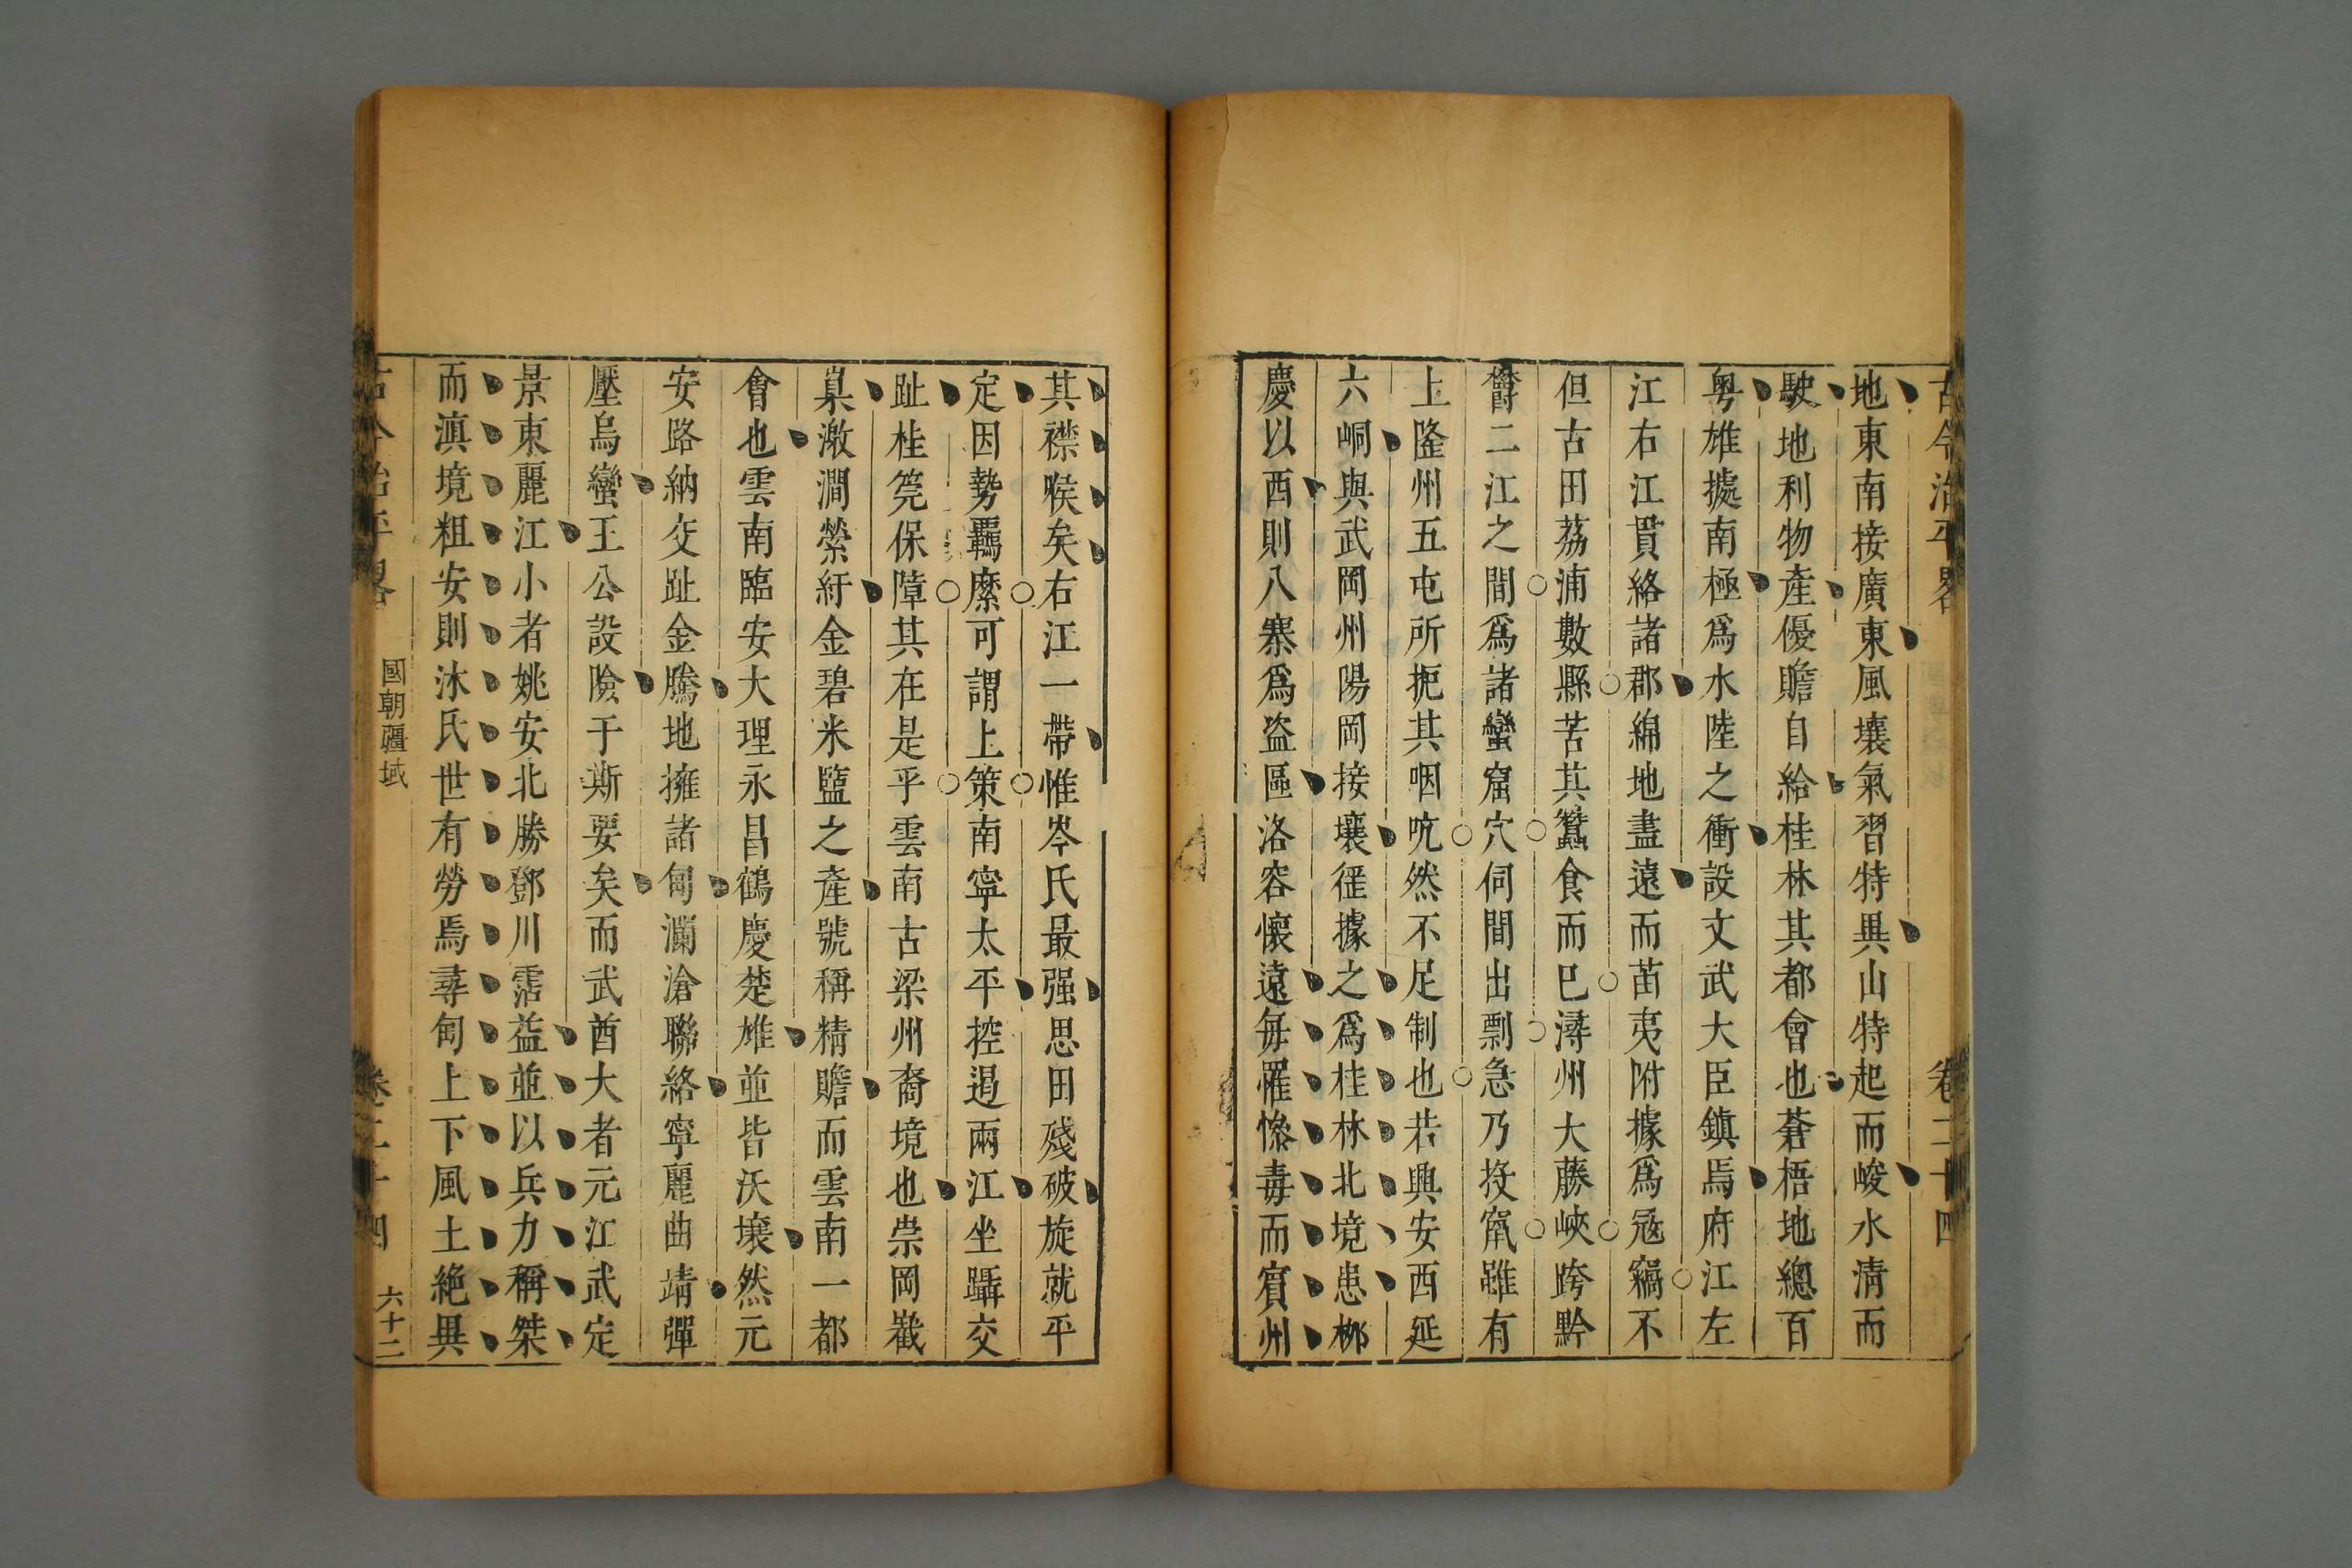 古今治平畧 卷二十四
地東南接廣東風壤氣習特異山特起而峻水清而
駛地利物產優贍自給桂林其都會也蒼梧地總百
粤雄據南極爲水陸之衝設文武大臣鎮焉府江左
江右江貫絡諸郡綿地盡遠而苗夷附據爲冦竊不
但古田荔浦數縣苦其蠶食而已潯州大藤峽跨黔
欝二江之間爲諸蠻窟穴伺間出剽急乃投竄雖有
上隆州五屯所扼其咽吭然不足制也若興安西延
六峒與武岡州陽岡接壤徭據之爲桂林北境患栁
慶以西則八寨爲盗區洛容懷遠每罹慘毒而賓州
其襟喉矣右江一帶惟岑氏最强思田殘破旋就平
定因勢羈縻可謂上策南寧太平控遏兩江坐躡交
趾桂筦保障其在是乎雲南古梁州裔境也崇岡巀
嵲激澗縈紆金碧米鹽之產號稱精贍而雲南一都
會也雲南臨安大理永昌鶴慶楚雄並皆沃壤然元
安路納交趾金騰地擁諸甸瀾滄聯絡寧麗曲靖彈
壓烏蠻王公設險于斯要矣而武酋大者元江武定
景東麗江小者姚安北勝鄧川霑益並以兵力稱桀
而滇境粗安則沐氏世有勞焉尋甸上下風土絶異
古今治平畧 國朝疆域 卷二十四 六十二